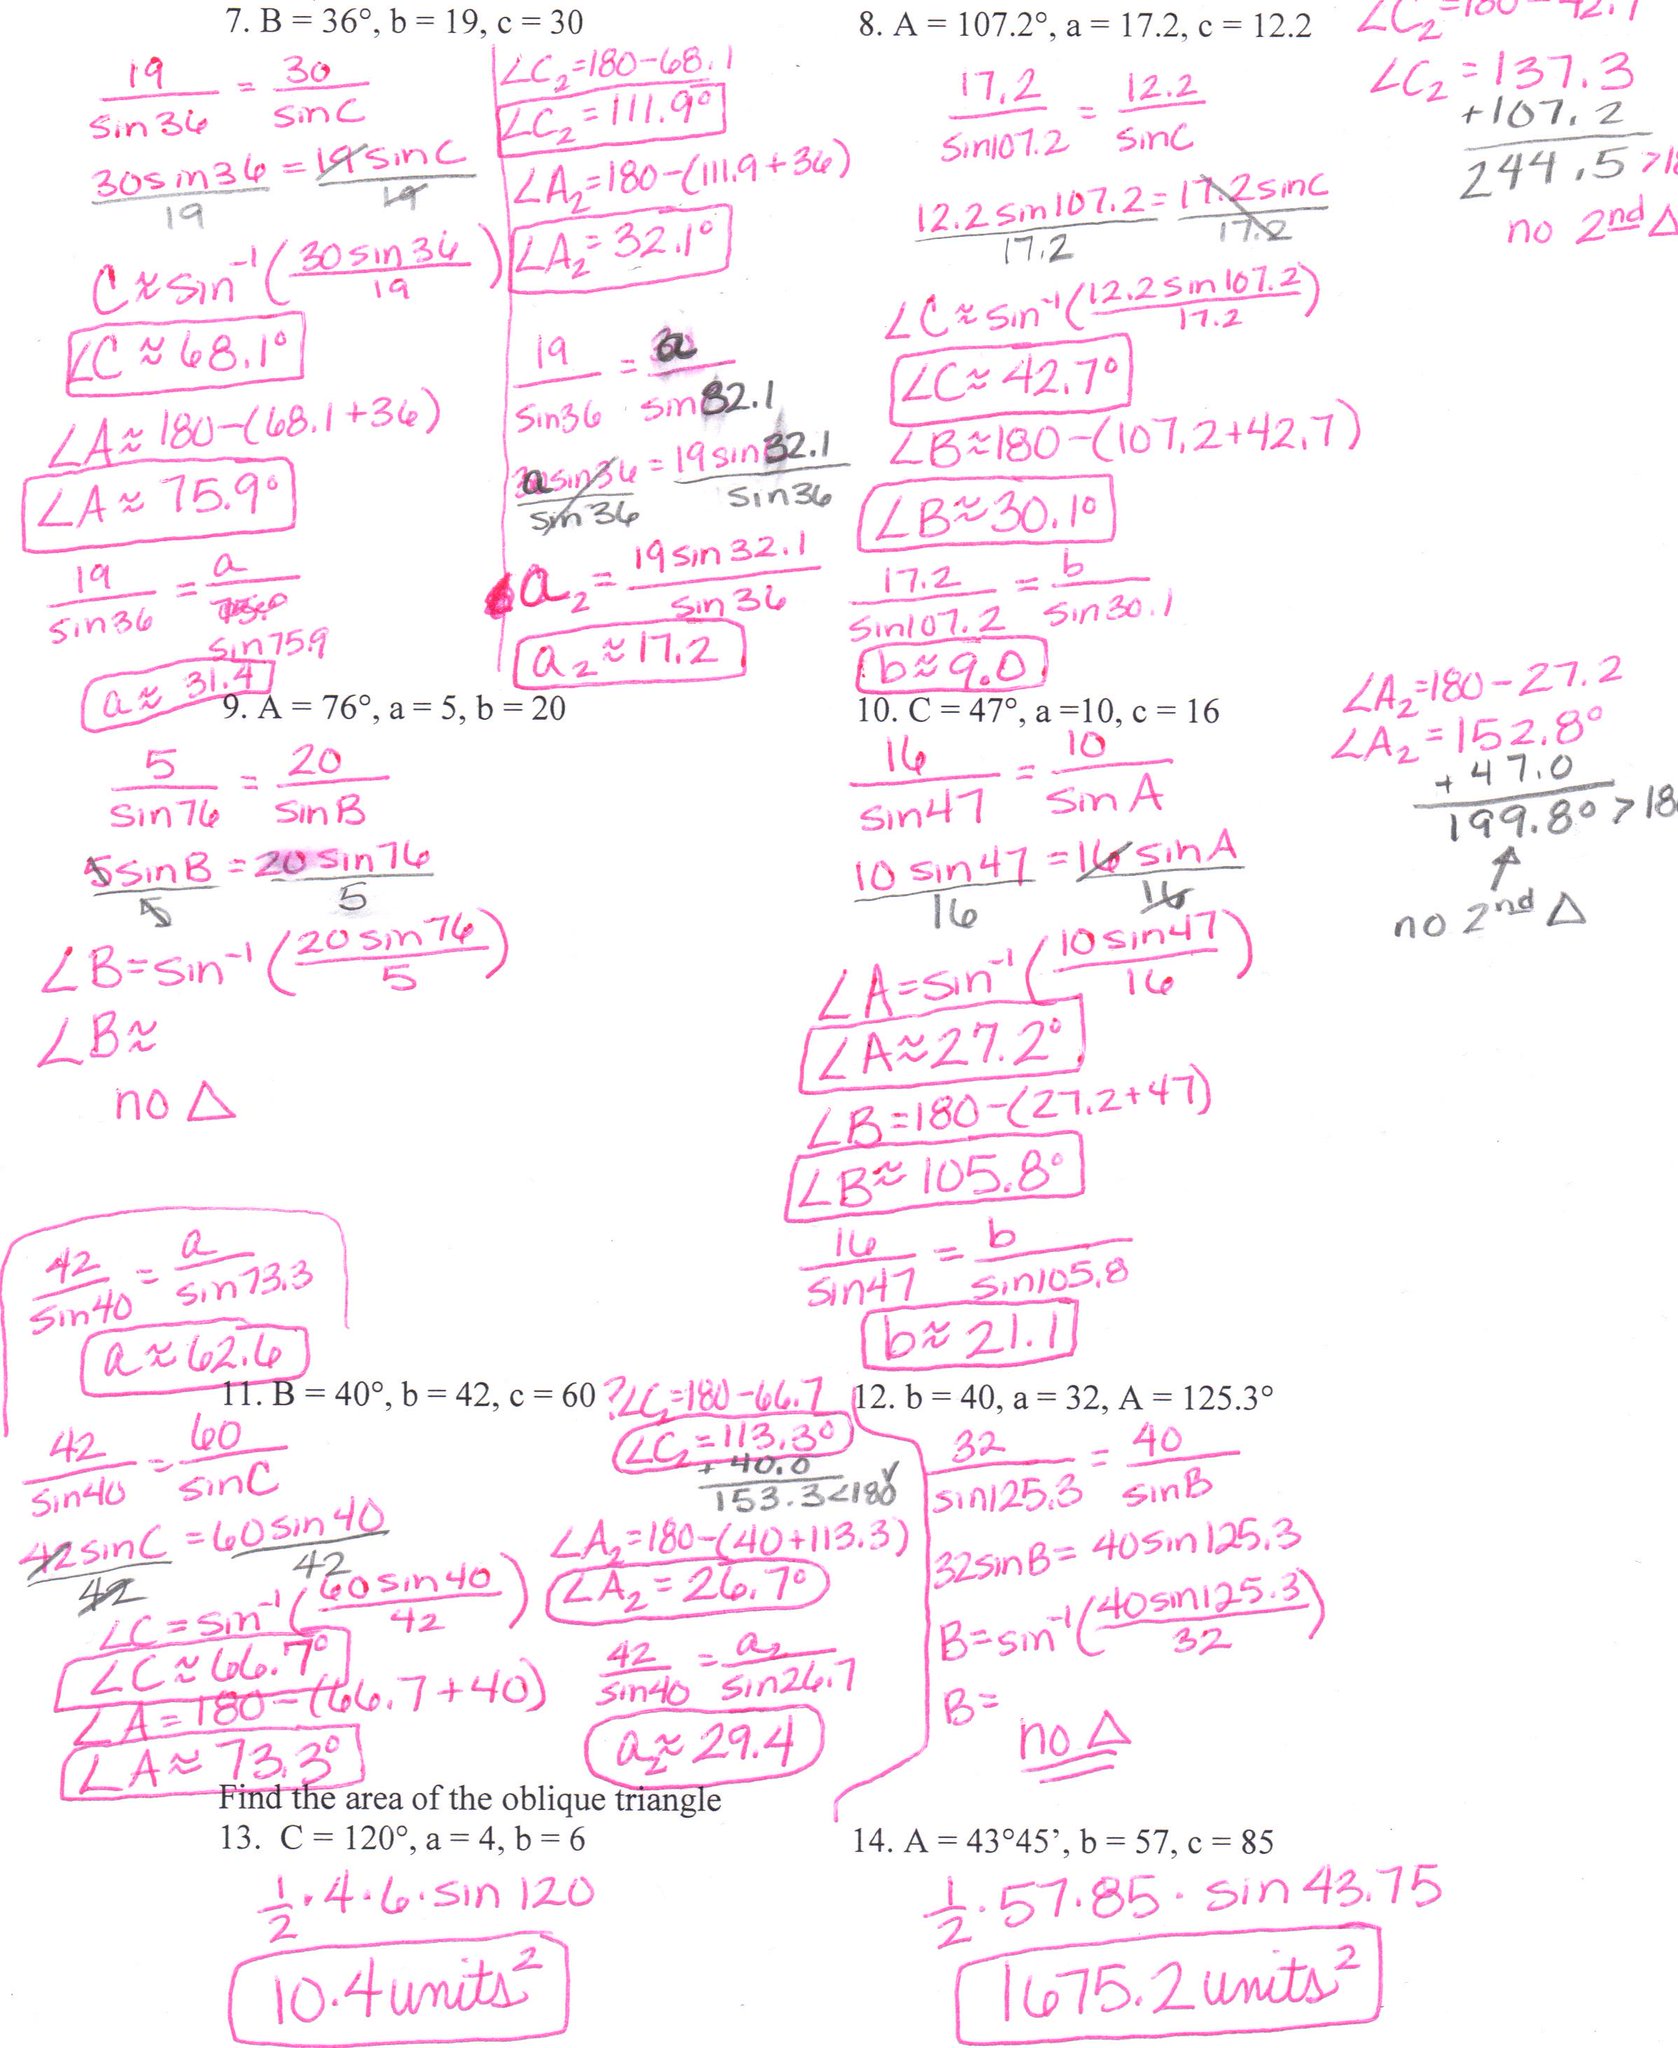 7. B = 36°, b = 19, c = 30
19/sin36 = 30/sinC
30sin36/19 = 19sinC/19
C ≈ sin⁻¹(30sin36/19)
∠C ≈ 68.1°
∠A ≈ 180-(68.1+36)
∠A ≈ 75.9°
19/sin36 = a/sin75.9
a ≈ 31.4
∠C₂=180-68.1
∠C₂=111.9°
∠A₂=180-(111.9+36)
∠A₂=32.1°
19/sin36 = a/sin32.1
asin36/sin36 = 19sin32.1/sin36
a₂ = 19sin32.1/sin36
a₂ ≈ 17.2
8. A = 107.2°, a = 17.2, c = 12.2
17.2/sin107.2 = 12.2/sinC
12.2sin107.2/17.2 = 17.2sinC/17.2
∠C ≈ sin⁻¹(12.2sin107.2/17.2)
∠C ≈ 42.7°
∠B ≈ 180-(107.2+42.7)
∠B ≈ 30.1°
17.2/sin107.2 = b/sin30.1
b ≈ 9.0
∠C₂=180-42.7
∠C₂ = 137.3
+107.2
244.5 >18
no 2nd △
9. A = 76°, a = 5, b = 20
5/sin76 = 20/sinB
5sinB/5 = 20sin76/5
∠B = sin⁻¹(20sin76/5)
∠B ≈
no △
10. C = 47°, a =10, c = 16
16/sin47 = 10/sinA
10sin47/16 = 16sinA/16
∠A = sin⁻¹(10sin47/16)
∠A ≈ 27.2°
∠B = 180-(27.2+47)
∠B ≈ 105.8°
16/sin47 = b/sin105.8
b ≈ 21.1
∠A₂=180-27.2
∠A₂=152.8°
+47.0
199.8° >18
no 2nd △
42/sin40 = a/sin73.3
a ≈ 62.6
11. B = 40°, b = 42, c = 60
42/sin40 = 60/sinC
42sinC/42 = 60sin40/42
∠C = sin⁻¹(60sin40/42)
∠C ≈ 66.7°
∠A = 180-(66.7+40)
∠A ≈ 73.3°
?∠C₂=180-66.7
∠C₂=113.3°
+40.0
153.3<180✓
∠A₂=180-(40+113.3)
∠A₂=26.7°
42/sin40 = a₂/sin26.7
a₂ ≈ 29.4
12. b = 40, a = 32, A = 125.3°
32/sin125.3 = 40/sinB
32sinB = 40sin125.3
B = sin⁻¹(40sin125.3/32)
B=
no △
Find the area of the oblique triangle
13. C = 120°, a = 4, b = 6
1/2 · 4 · 6 · sin 120
10.4 units²
14. A = 43°45’, b = 57, c = 85
1/2 · 57 · 85 · sin 43.75
1675.2 units²